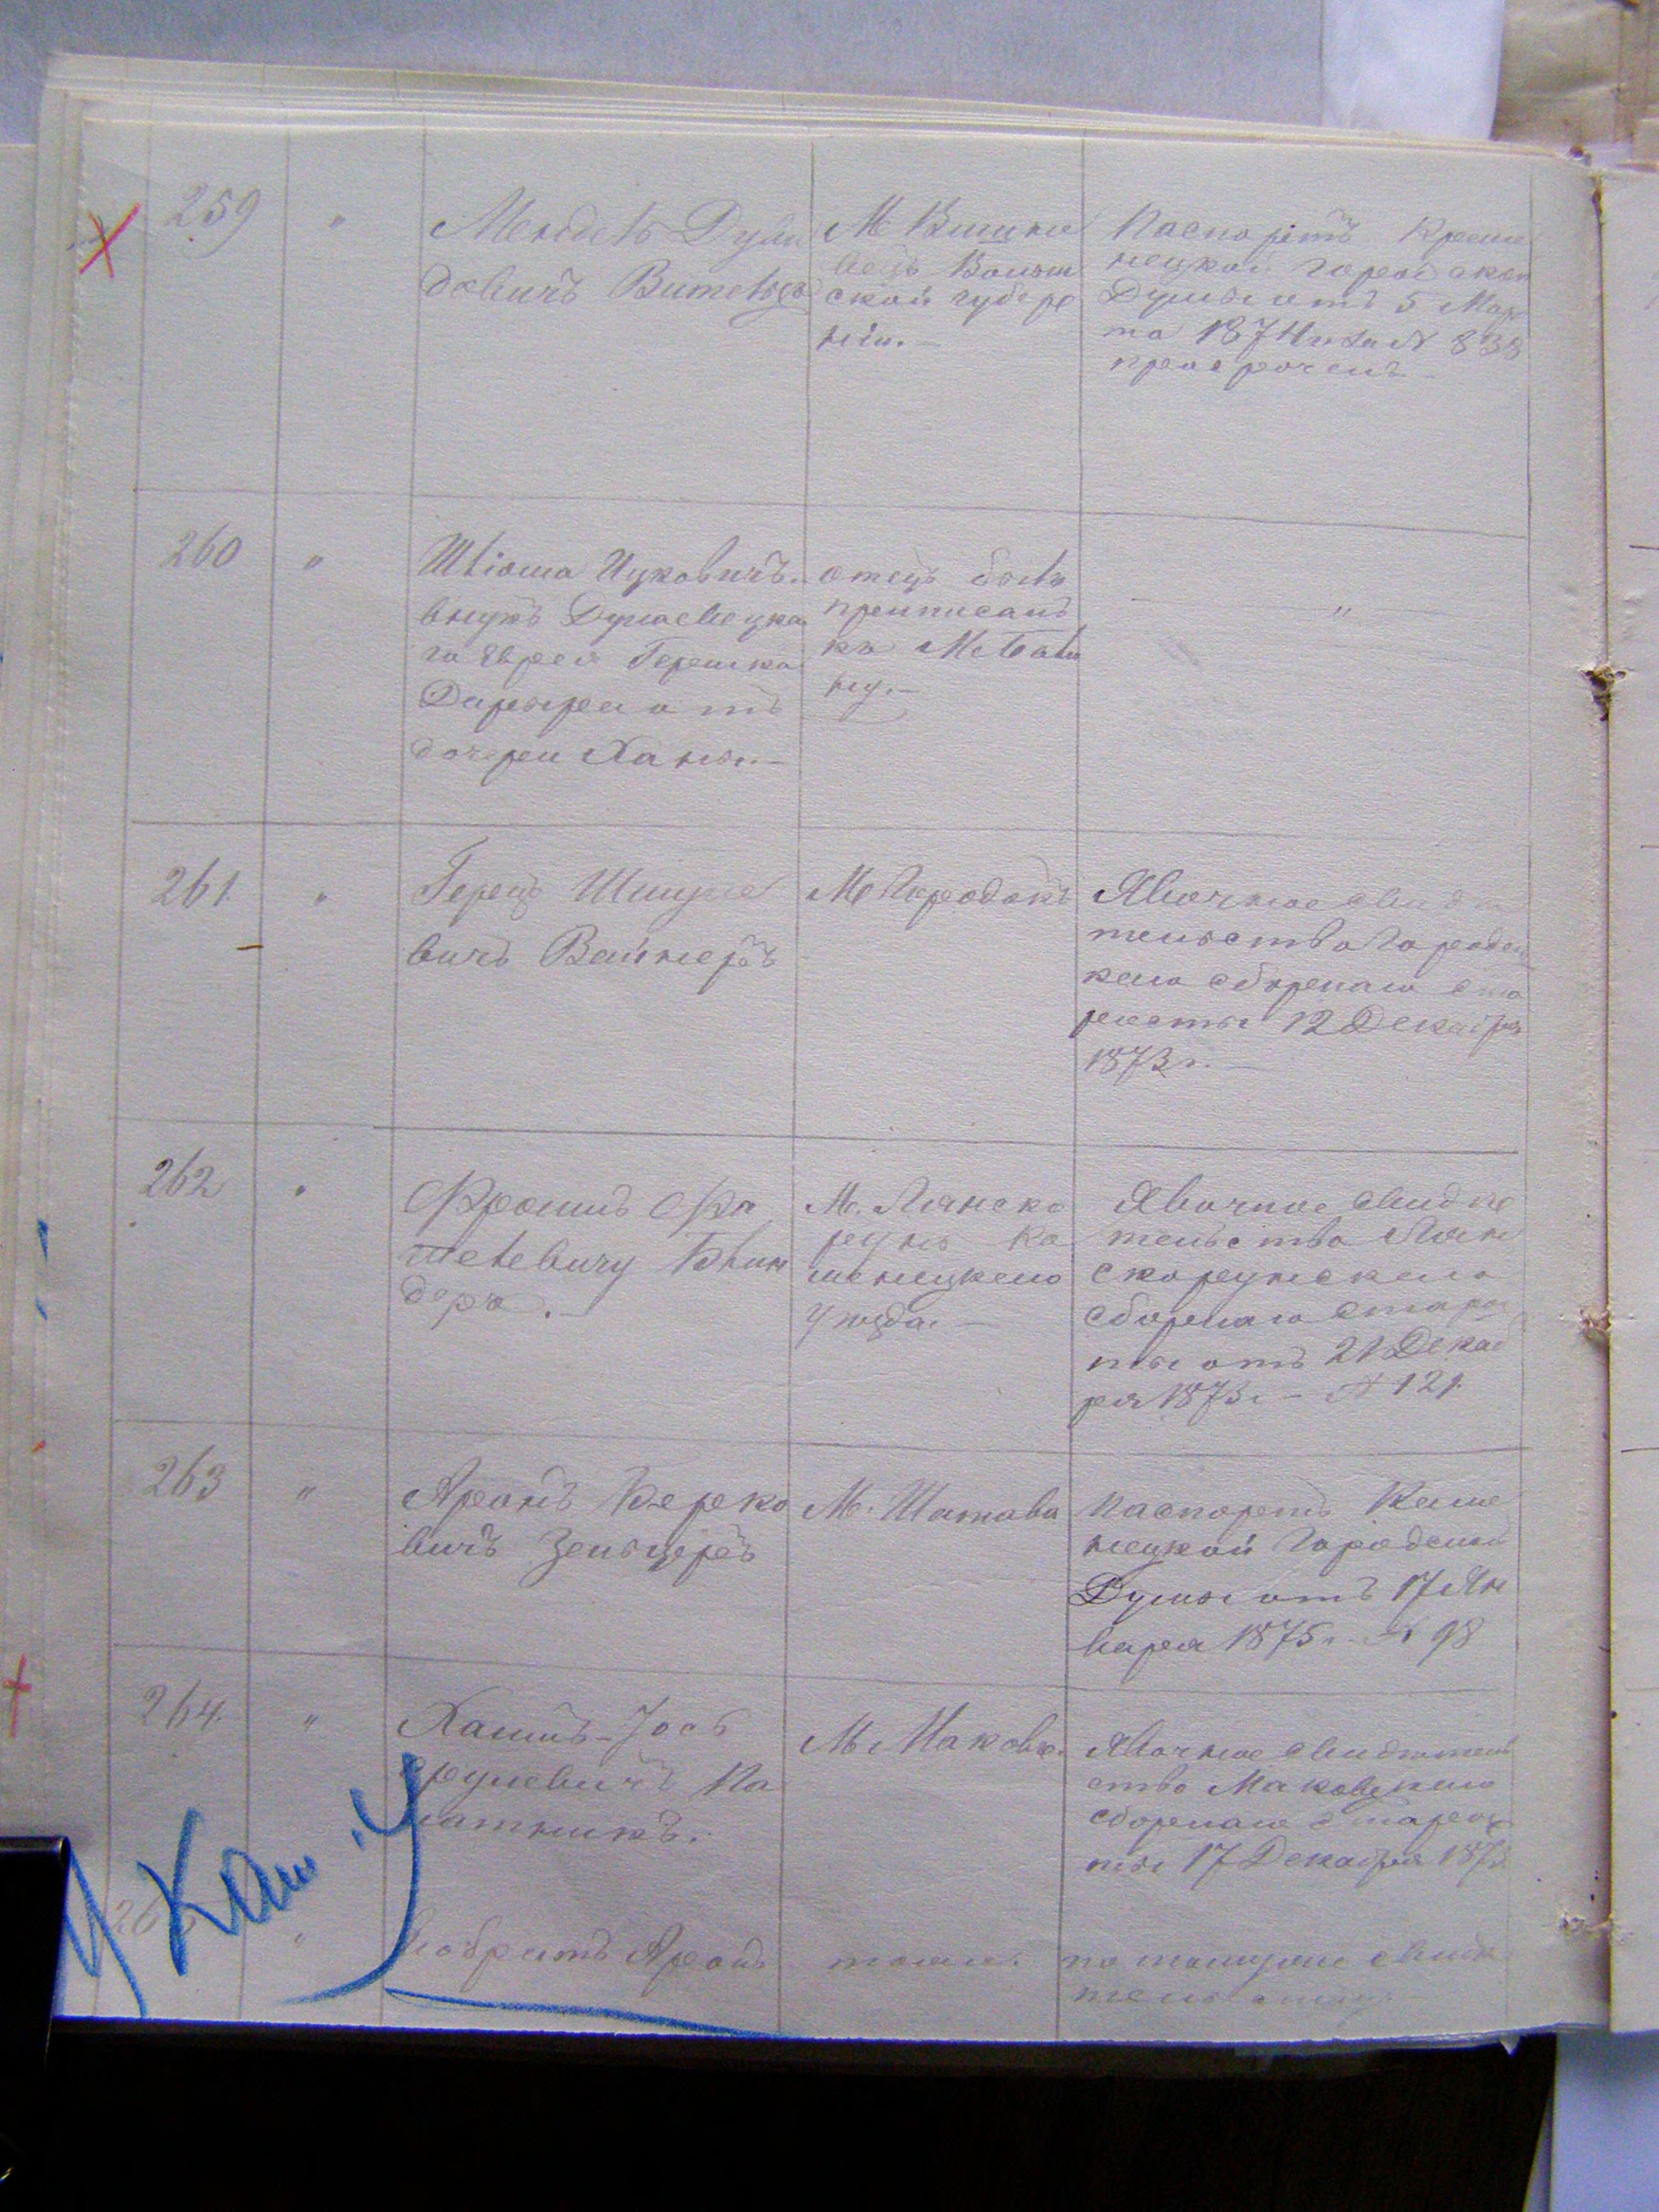 259 "
Мендель Дуви
довичъ Вительсъ
М Вишне
вецъ Волын
ской губер
ніи.—
Паспортъ Креме
нецкой Городской
Думы отъ 5 Мар
та 1874 г за № 838
просроченъ
260 "
Шліома Ицковичъ.
внукъ Дунаевецка
го Еврея Гершка
отъ
дочери Ханы.—
отецъ былъ
приписанъ
къ М
ну.—
"
261. "
Герецъ Шмуле
вичъ Вайнеръ
М Городокъ
Явочное свидѣ
тельство Городец
каго сборнаго ста
росты 12 Декабря
1873 г.—
262 "
Фроимъ Фи
шелевичъ Блин
деръ.—
М. Лянско
рунь Ка
менецкаго
уѣзда.—
Явочное свидѣ
тельство Лян
скорунскаго
сборнаго старос
ты отъ 21 Декаб
ря 1873 г.— № 121.
263 "
Аронъ Берко
вичъ Зельцеръ
М. Шатава
Паспортъ Каме
нецкой Городской
Думы отъ 17 Ян
варя 1875 г.— № 98
264. "
Хаимъ-Іось
Срулевичъ Па
латникъ.
М Маковъ.
Явочное свидѣтель
ство Маковскаго
сборнаго старос
ты 17 Декабря 1873
265 "
братъ Аронъ
тоже.
по тому же свидѣ
тельству.